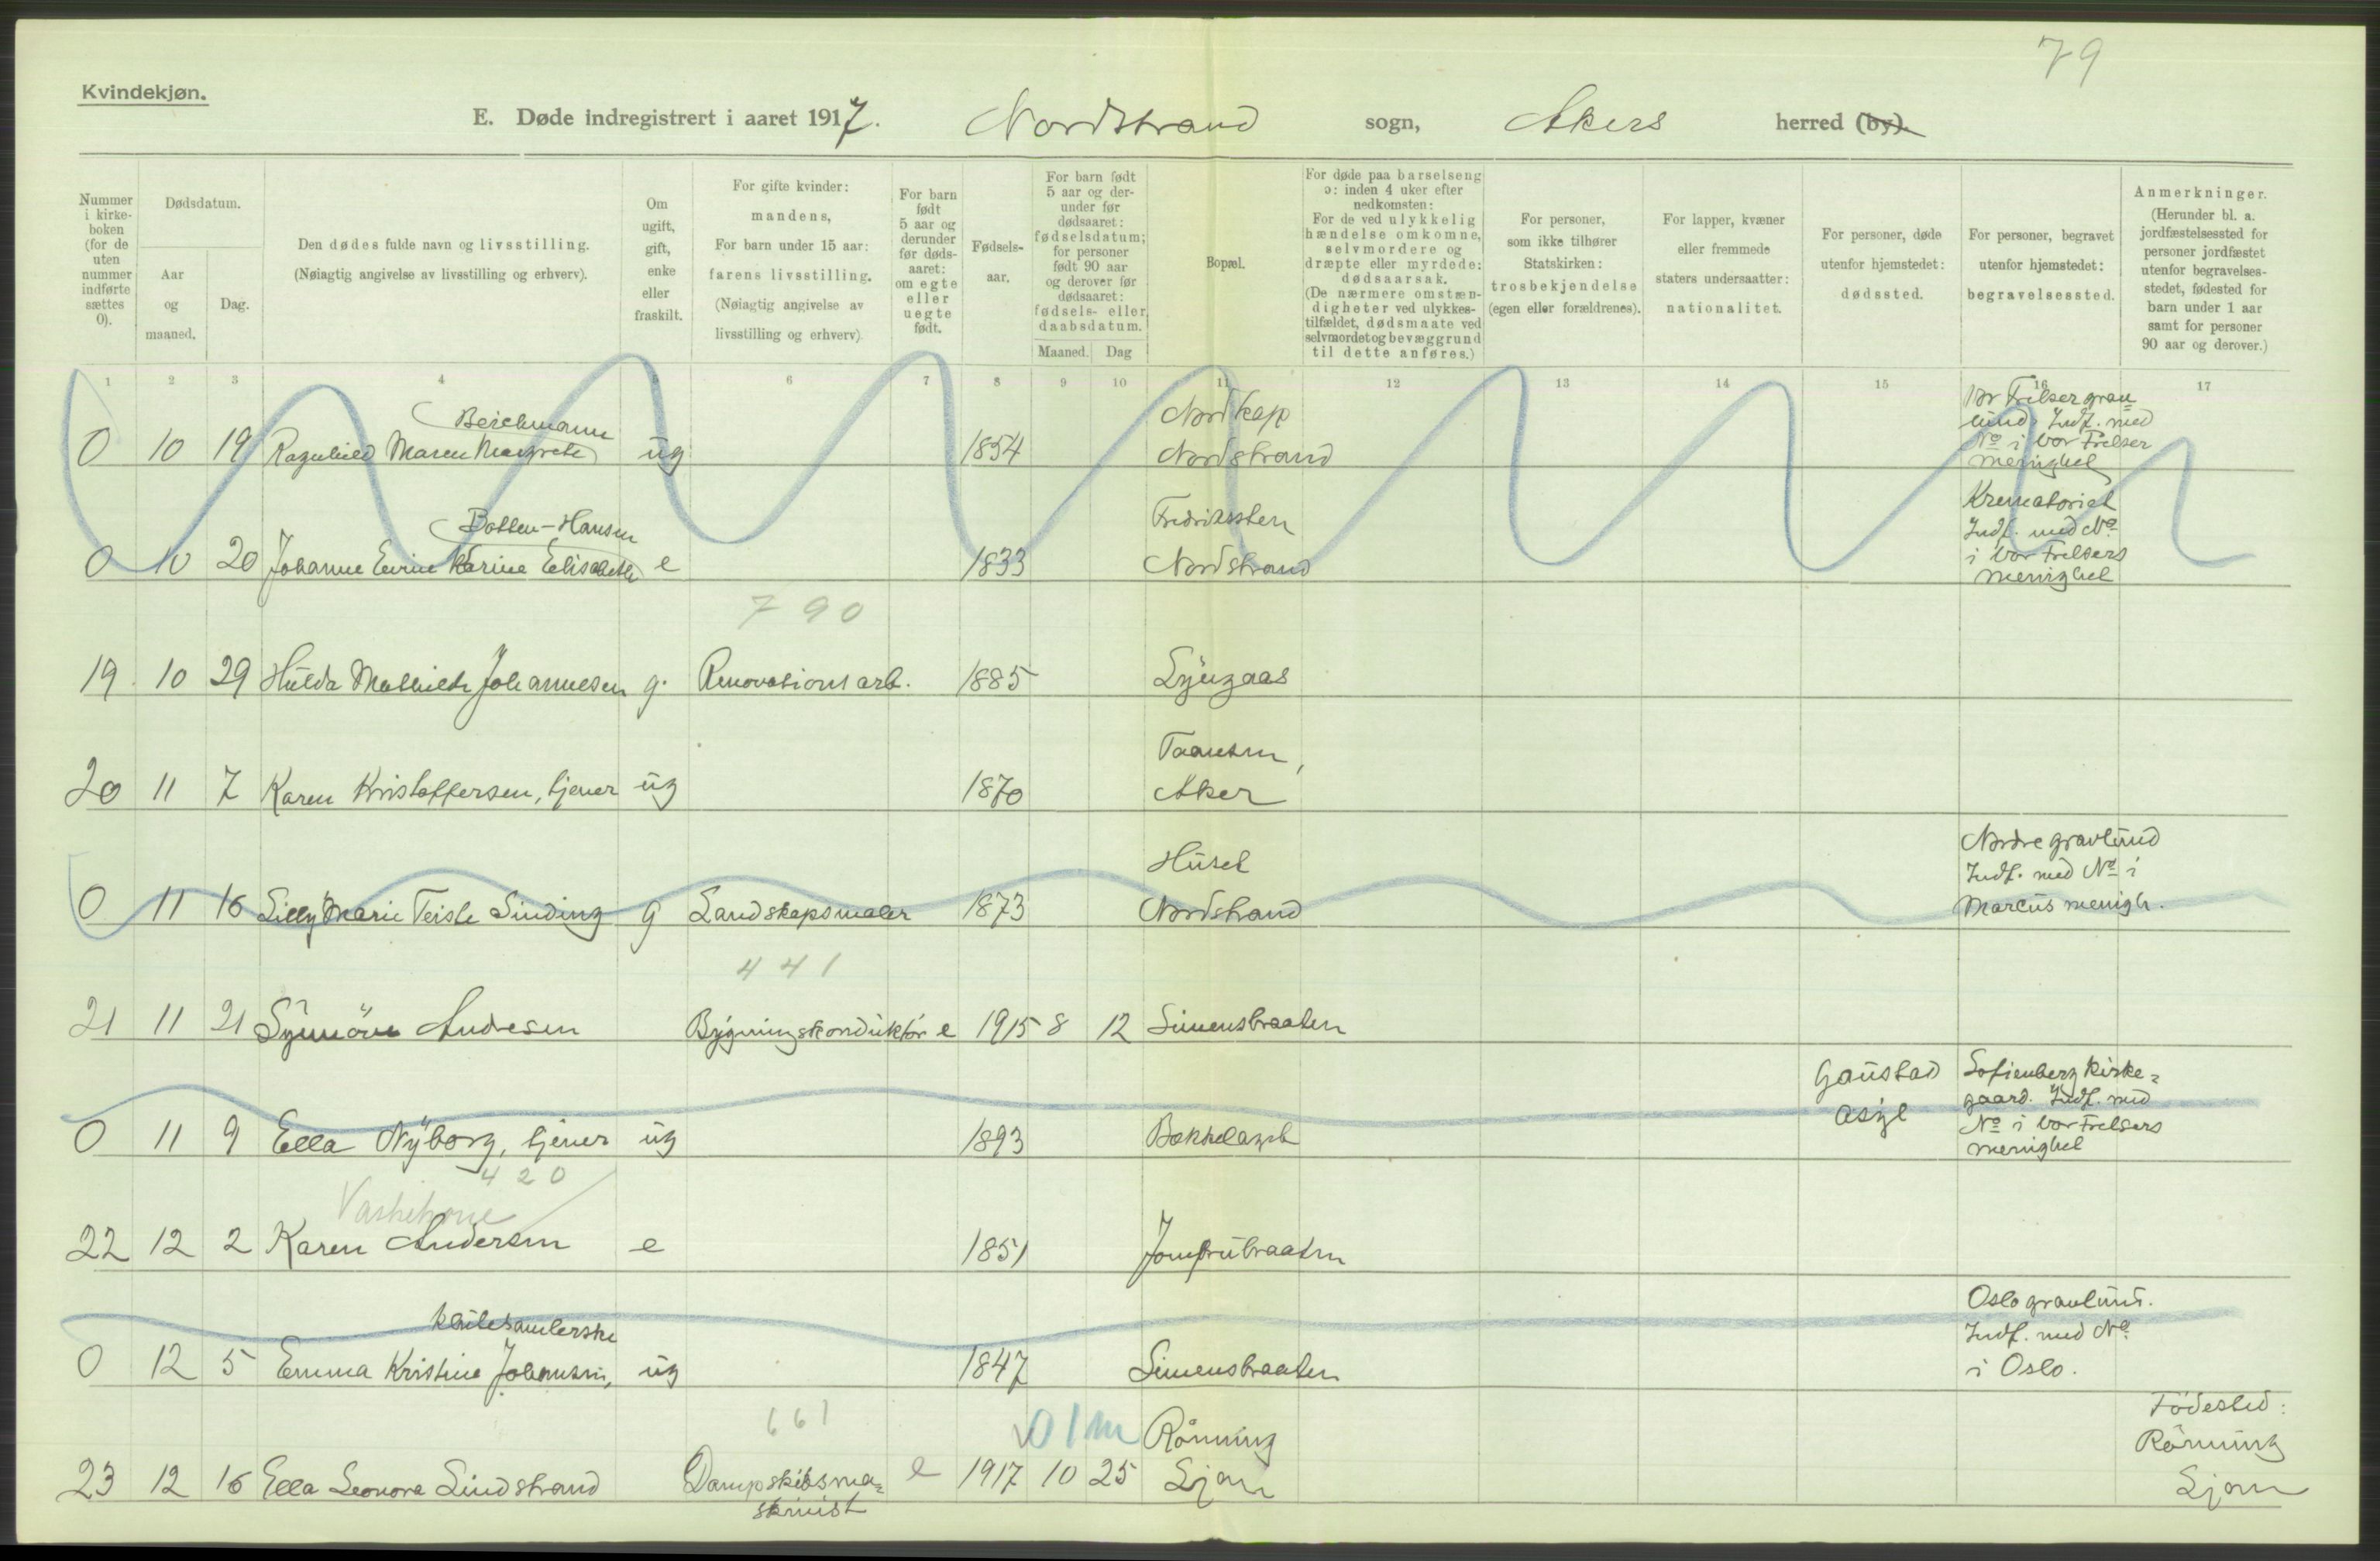 79
Kvindekjøn.
E. Døde indregistrert i aaret 1917. Nordstrand sogn, Akers herred (by).
Nummer i kirkeboken (for de uten nummer indførte sættes 0).
Dødsdatum.
Aar og maaned.
Dag.
Den dødes fulde navn og livsstilling.
(Nøiagtig angivelse av livsstilling og erhverv).
Om ugift, gift, enke eller fraskilt.
For gifte kvinder: mandens,
For barn under 15 aar: farens livsstilling.
(Nøiagtig angivelse av livsstilling og erhverv).
For barn født 5 aar og derunder før dødsaaret: om egte eller uegte født.
Fødselsaar.
For barn født 5 aar og derunder før dødsaaret: fødselsdatum; for personer født 90 aar og derover før dødsaaret: fødsels- eller daabsdatum.
Maaned. Dag
Bopæl.
For døde paa barselseng ɔ: inden 4 uker efter nedkomsten:
For de ved ulykkelig hændelse omkomne, selvmordere og dræpte eller myrdede: dødsaarsak.
(De nærmere omstændigheter ved ulykkestilfældet, dødsmaate ved selvmordet og bevæggrund til dette anføres.)
For personer, som ikke tilhører Statskirken: trosbekjendelse (egen eller forældrenes).
For lapper, kvæner eller fremmede staters undersaatter: nationalitet.
For personer, døde utenfor hjemstedet: dødssted.
For personer, begravet utenfor hjemstedet: begravelsessted.
Anmerkninger.
(Herunder bl. a. jordfæstelsessted for personer jordfæstet utenfor begravelsesstedet, fødested for barn under 1 aar samt for personer 90 aar og derover.)
1 2 3 4 5 6 7 8 9 10 11 12 13 14 15 16 17
Beichmann Nordkap Vor Frelser gravlund. Indf. med
0 10 19 Ragnhild Maren Margrete ug 1854 Nordstrand No i Vor Frelser menighet
Botten-Hansen Fredriksten Krematoriet Indf. med No
0 10 20 Johanne Karine Elisabeth e 1833 Nordstrand i Vor Frelsers menighet
790
19 10 29 Hulda Mathilde Johannesen g. Renovationsarb. 1885 Lyngaas
Taanetm,
20 11 7 Karen Kristoffersen, tjener ug 1870 Aker
Huset Nordre gravlund Indf. med No i
0 11 16 Lilly Marie Teiste Sinding g Landskapsmaler 1873 Nordstrand Marcus menigh.
441
21 11 21 Synnöve Andresen Bygningskonduktör e 1915 8 12 Simensbraaten
Gaustad Sofienberg kirke=
asyl gaard. Indf. med
0 11 9 Ella Nyborg, tjener ug 1893 Bækkelaget No i Vor Frelsers menighet
420
Vaskekone
22 12 2 Karen Andersen e 1851 Jomfrubraaten
klutesamlerske Oslo gravlund. Indf. med No
0 12 5 Emma Kristine Johansen, ug 1847 Simensbraaten i Oslo.
661 V 01m Rönning Födested: Rönning
23 12 16 Ella Leonora Lindstrand Dampskibsma= e 1917 10 25 Ljan Ljan
skinist